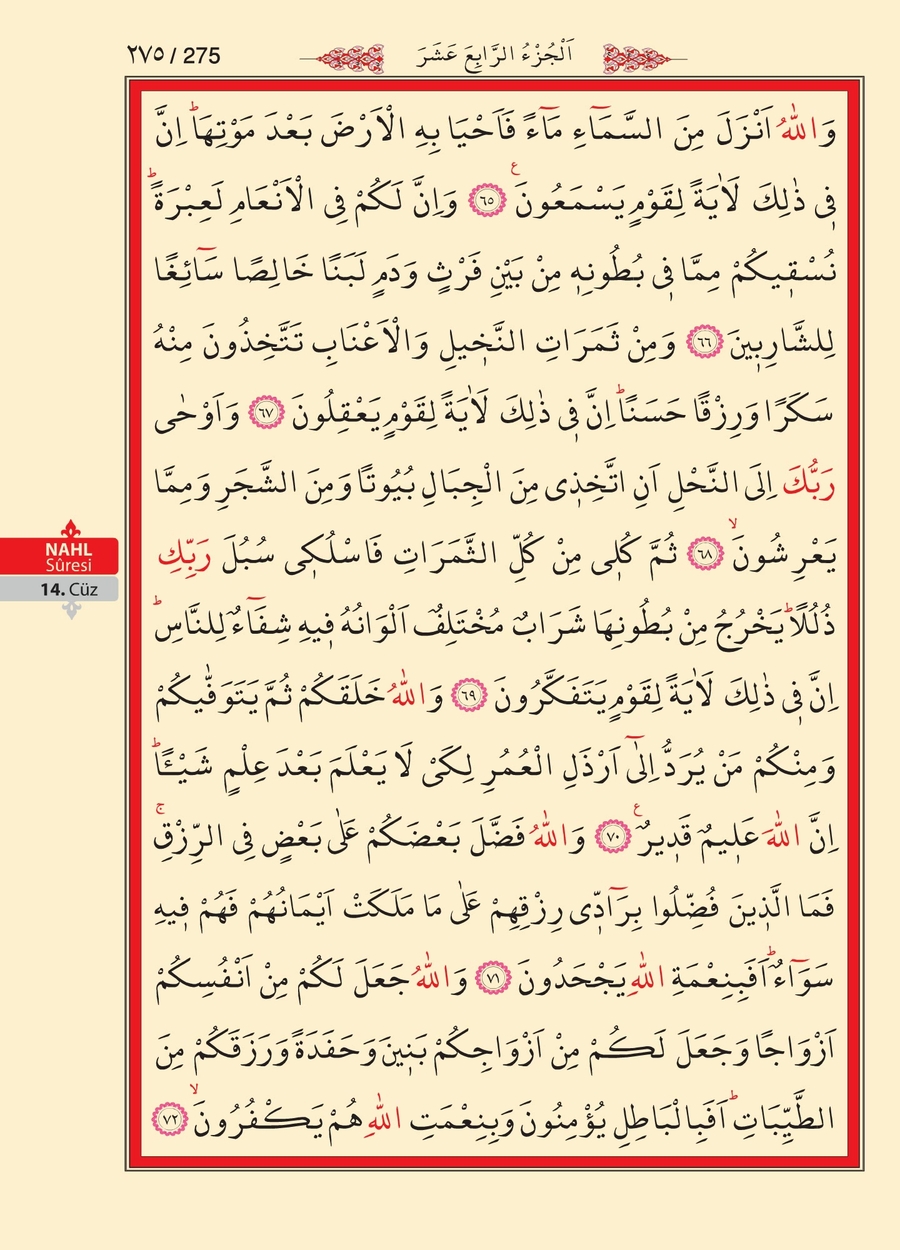 ٢٧٥ / 275
اَلْجُزْءُ الرَّابِعَ عَشَرَ
وَاللّٰهُ اَنْزَلَ مِنَ السَّمَٓاءِ مَٓاءً فَاَحْيَا بِهِ الْاَرْضَ بَعْدَ مَوْتِهَاۜ اِنَّ
ف۪ي ذٰلِكَ لَاٰيَةً لِقَوْمٍ يَسْمَعُونَ۟ ﴿٦٥﴾ وَاِنَّ لَكُمْ فِي الْاَنْعَامِ لَعِبْرَةًۜ
نُسْق۪يكُمْ مِمَّا ف۪ي بُطُونِه۪ مِنْ بَيْنِ فَرْثٍ وَدَمٍ لَبَنًا خَالِصًا سَٓائِغًا
لِلشَّارِب۪ينَ ﴿٦٦﴾ وَمِنْ ثَمَرَاتِ النَّخ۪يلِ وَالْاَعْنَابِ تَتَّخِذُونَ مِنْهُ
سَكَرًا وَرِزْقًا حَسَنًاۜ اِنَّ ف۪ي ذٰلِكَ لَاٰيَةً لِقَوْمٍ يَعْقِلُونَ ﴿٦٧﴾ وَاَوْحٰى
رَبُّكَ اِلَى النَّحْلِ اَنِ اتَّخِذ۪ي مِنَ الْجِبَالِ بُيُوتًا وَمِنَ الشَّجَرِ وَمِمَّا
يَعْرِشُونَۙ ﴿٦٨﴾ ثُمَّ كُل۪ي مِنْ كُلِّ الثَّمَرَاتِ فَاسْلُك۪ي سُبُلَ رَبِّكِ
ذُلُلًاۜ يَخْرُجُ مِنْ بُطُونِهَا شَرَابٌ مُخْتَلِفٌ اَلْوَانُهُ ف۪يهِ شِفَٓاءٌ لِلنَّاسِۜ
اِنَّ ف۪ي ذٰلِكَ لَاٰيَةً لِقَوْمٍ يَتَفَكَّرُونَ ﴿٦٩﴾ وَاللّٰهُ خَلَقَكُمْ ثُمَّ يَتَوَفّٰيكُمْ
وَمِنْكُمْ مَنْ يُرَدُّ اِلٰٓى اَرْذَلِ الْعُمُرِ لِكَيْ لَا يَعْلَمَ بَعْدَ عِلْمٍ شَيْـًٔاۜ
اِنَّ اللّٰهَ عَل۪يمٌ قَد۪يرٌ۟ ﴿٧٠﴾ وَاللّٰهُ فَضَّلَ بَعْضَكُمْ عَلٰى بَعْضٍ فِي الرِّزْقِۚ
فَمَا الَّذ۪ينَ فُضِّلُوا بِرَٓادّ۪ي رِزْقِهِمْ عَلٰى مَا مَلَكَتْ اَيْمَانُهُمْ فَهُمْ ف۪يهِ
سَوَٓاءٌۜ اَفَبِنِعْمَةِ اللّٰهِ يَجْحَدُونَ ﴿٧١﴾ وَاللّٰهُ جَعَلَ لَكُمْ مِنْ اَنْفُسِكُمْ
اَزْوَاجًا وَجَعَلَ لَكُمْ مِنْ اَزْوَاجِكُمْ بَن۪ينَ وَحَفَدَةً وَرَزَقَكُمْ مِنَ
الطَّيِّبَاتِۜ اَفَبِالْبَاطِلِ يُؤْمِنُونَ وَبِنِعْمَتِ اللّٰهِ هُمْ يَكْفُرُونَۙ ﴿٧٢﴾
NAHL
Sûresi
14. Cüz